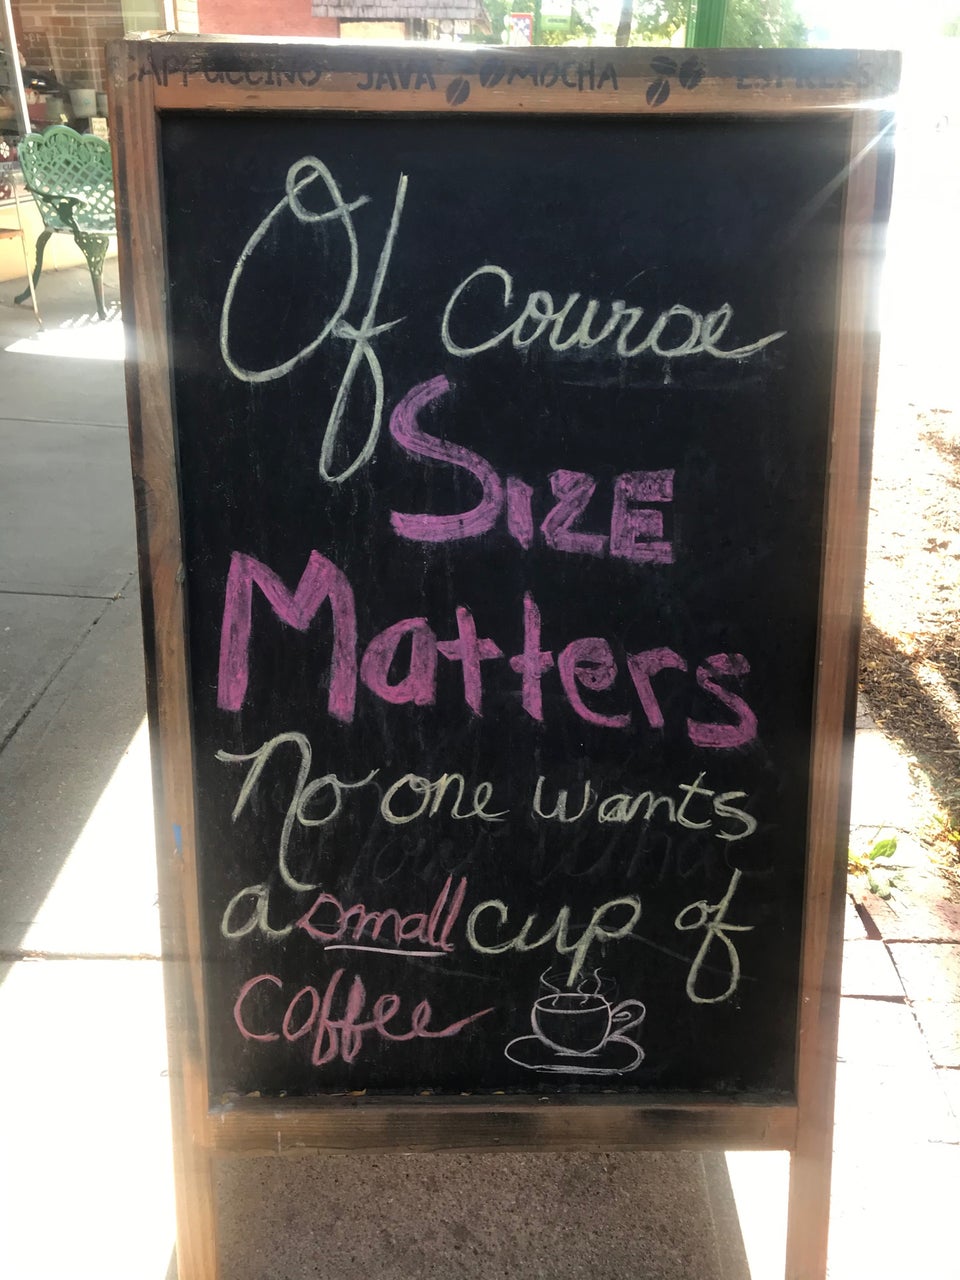 CAPPUCCINO JAVA MOCHA ESPRESS
Of course
SIZE
Matters
No one wants
a small cup of
coffee